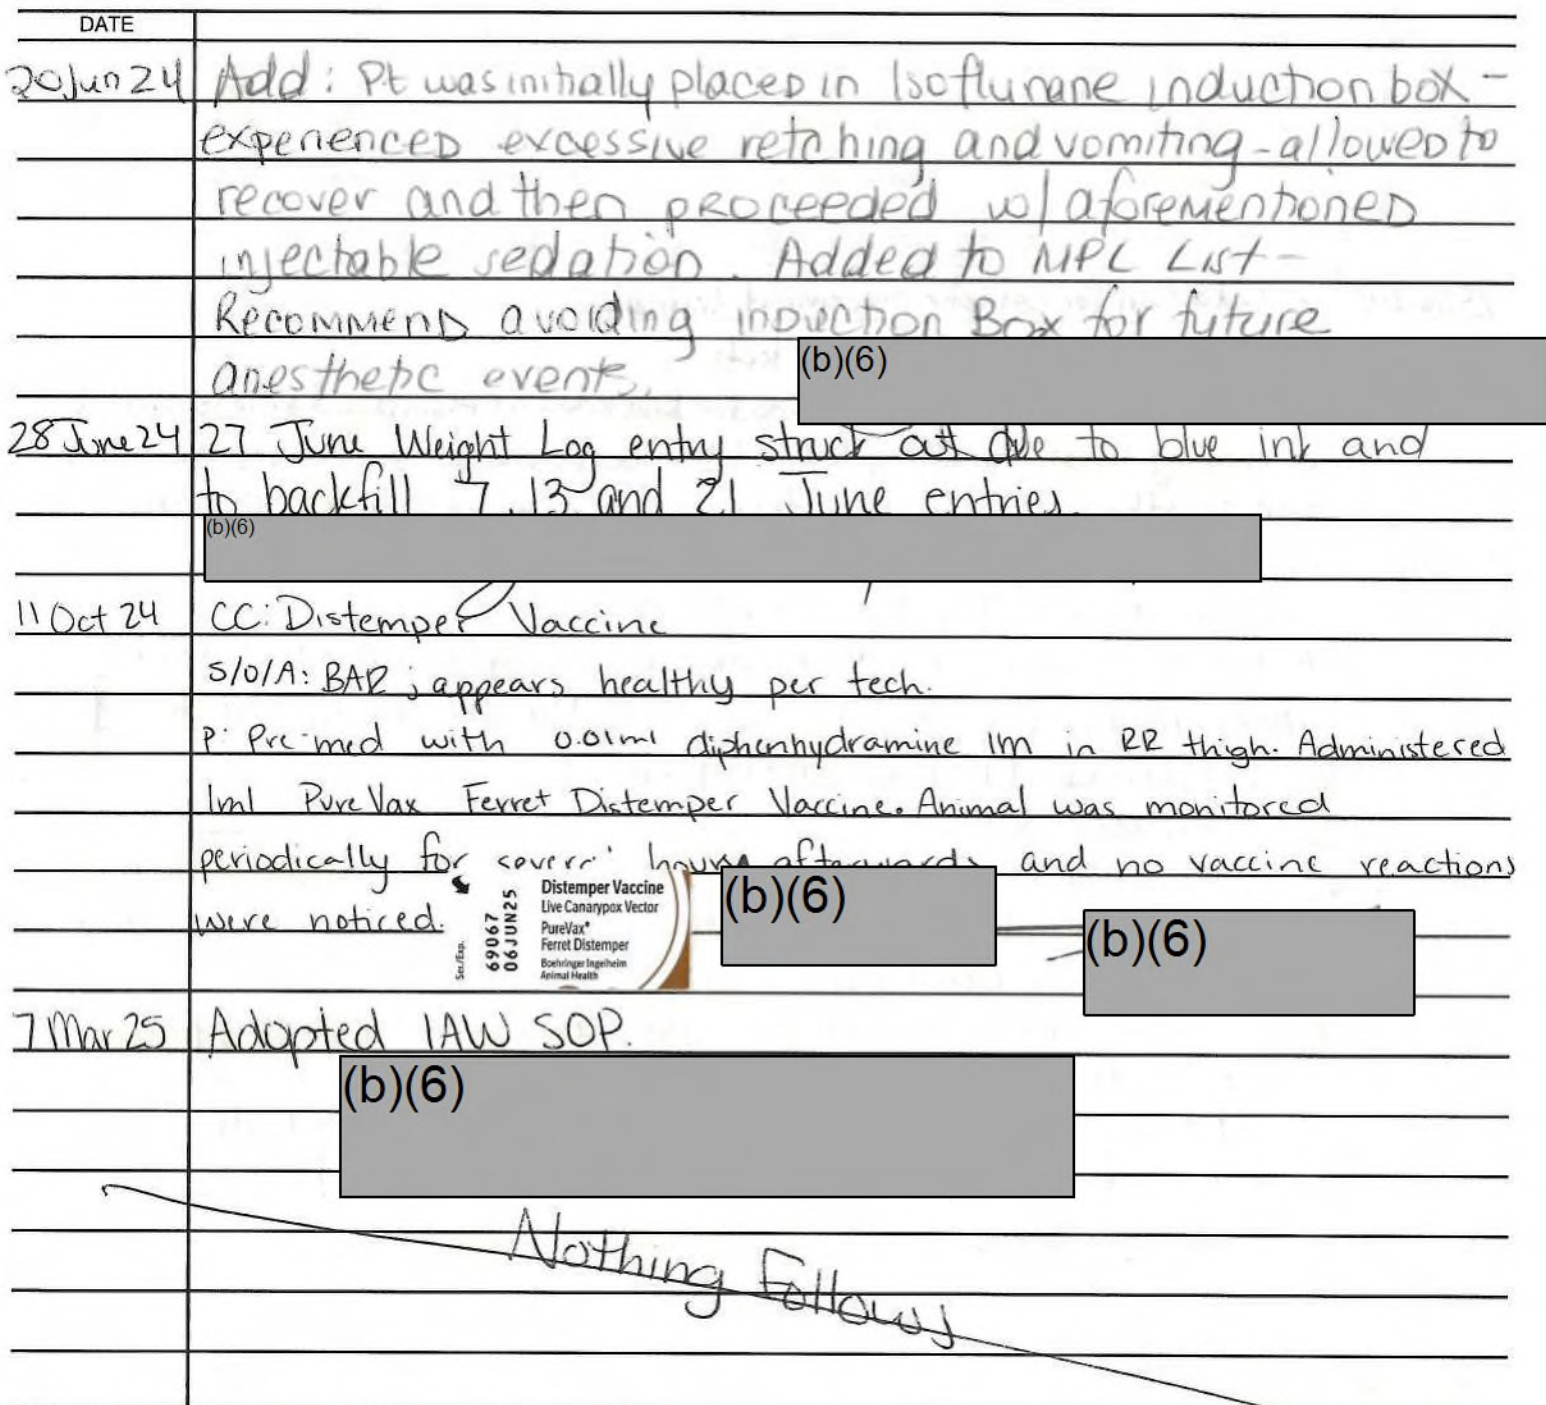 DATE
20Jun24 Add: Pt was initially placed in Isoflurane induction box -
experienced excessive retching and vomiting - allowed to
recover and then proceeded w/ aforementioned
injectable sedation. Added to MPL List -
Recommend avoiding induction Box for future
anesthetic events.
(b)(6)
28 June 24 27 June Weight Log entry struck out due to blue ink and
to backfill 7, 13 and 21 June entries.
(b)(6)
11 Oct 24 CC: Distemper Vaccine
S/O/A: BAR; appears healthy per tech.
P: Pre-med with 0.01ml diphenhydramine IM in RR thigh. Administered
1ml PureVax Ferret Distemper Vaccine. Animal was monitored
periodically for hours afterwards and no vaccine reactions
were noticed.
Ser./Exp.
69067
06JUN25
Distemper Vaccine
Live Canarypox Vector
PureVax®
Ferret Distemper
Boehringer Ingelheim
Animal Health
(b)(6)
(b)(6)
7 Mar 25 Adopted IAW SOP.
(b)(6)
Nothing Follows